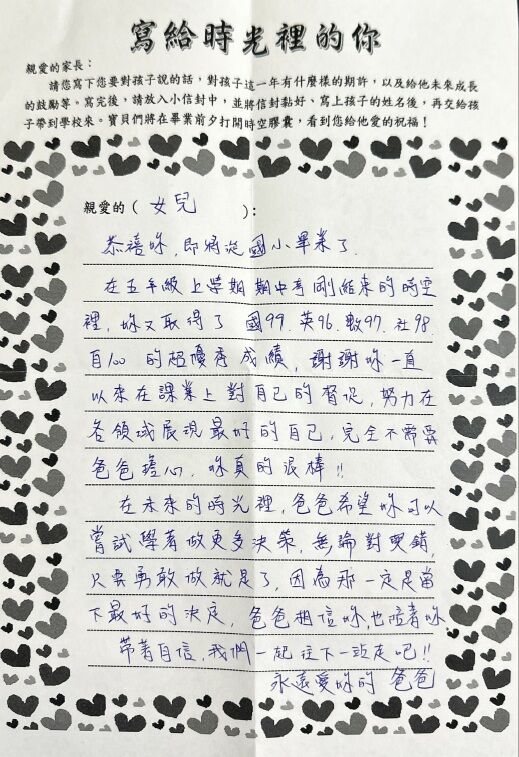 寫給時光裡的你
親愛的家長：
請您寫下您要對孩子說的話，對孩子這一年有什麼樣的期許，以及給他未來成長
的鼓勵等。寫完後，請放入小信封中，並將信封黏好、寫上孩子的姓名後，再交給孩
子帶到學校來。寶貝們將在畢業前夕打開時空膠囊，看到您給他愛的祝福！
親愛的（ 女兒 ）：
恭禧妳，即將從國小畢業了.
在五年級上學期期中考剛結束的時空
裡，妳又取得了 國99. 英96. 數97. 社98.
自100 的超優秀成績，謝謝妳一直
以來在課業上對自己的督促，努力在
各領域展現最好的自己，完全不需要
爸爸擔心. 妳真的很棒!!
在未來的時光裡，爸爸希望妳可以
嘗試學著做更多決策，無論對與錯，
只要勇敢做就是了，因為那一定是當
下最好的決定，爸爸相信妳，也陪著妳.
帶著自信，我們一起往下一站走吧!!
永遠愛妳的 爸爸